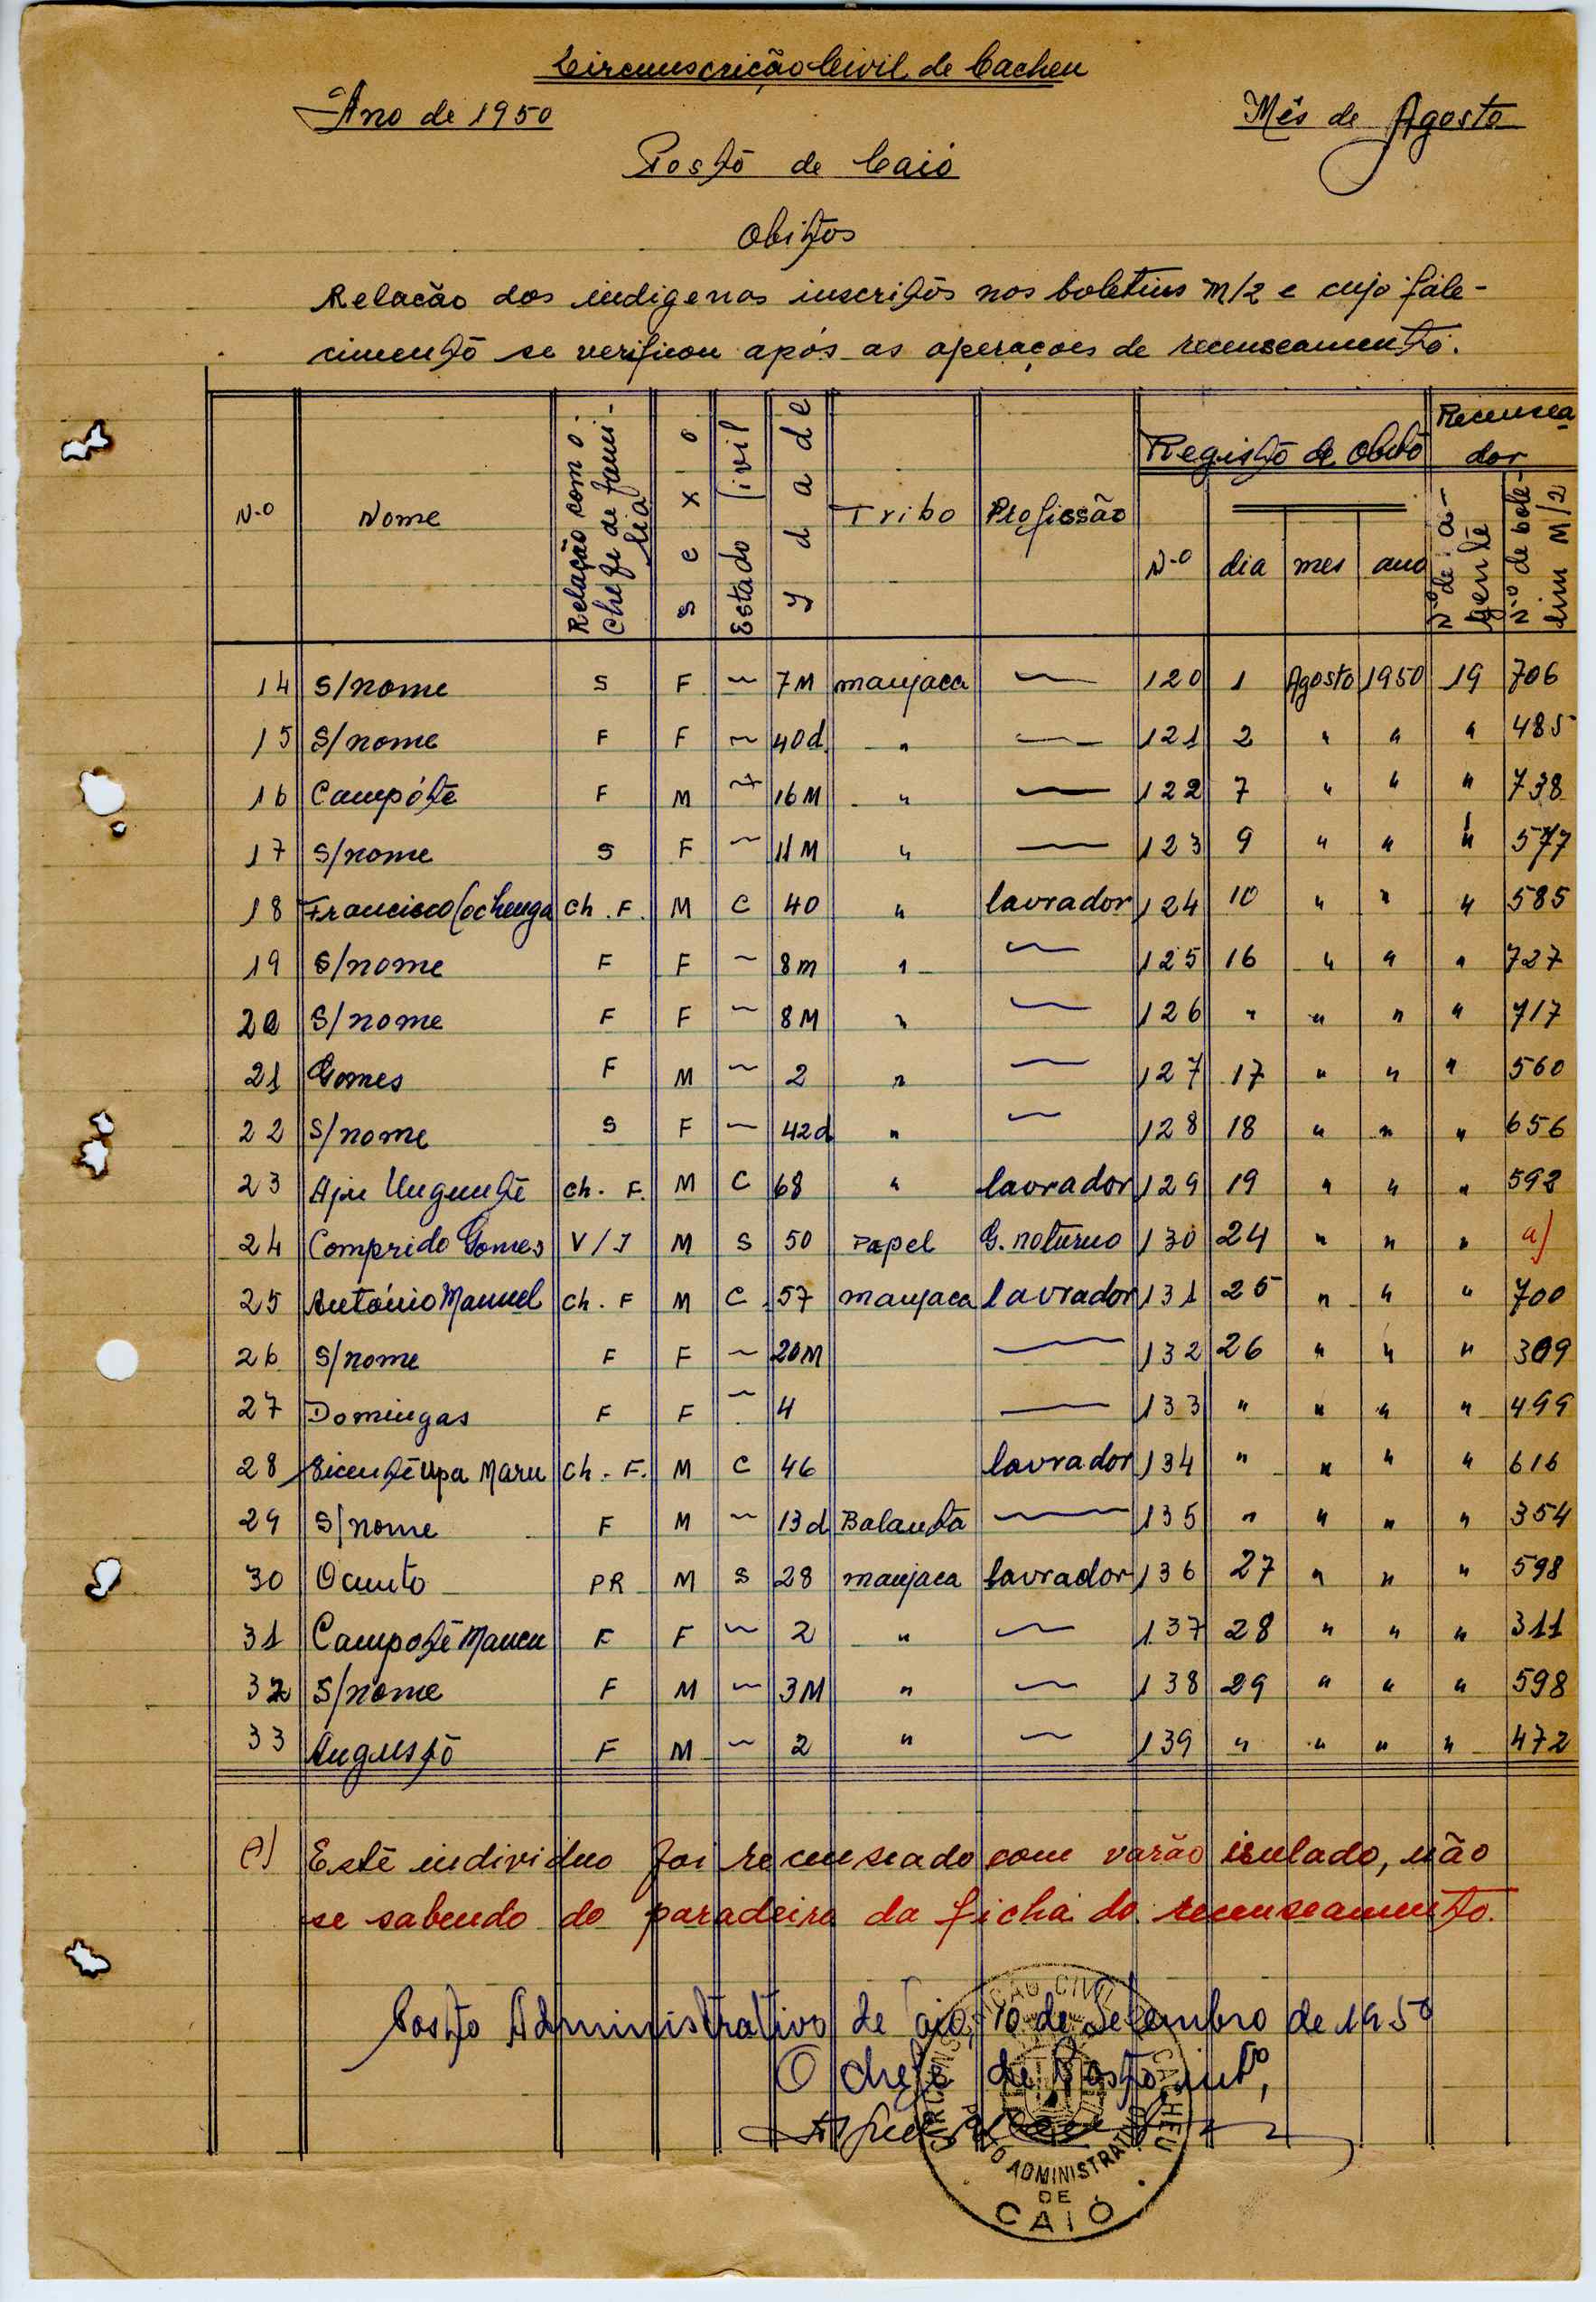 Circunscrição Civil de Cacheu
Ano de 1950 Mês de Agosto
Posto de Caió
Obitos
Relacão dos indigenas inscritos nos boletins M/2 e cujo fale-
cimento se verificou após as operaçoes de recenseamento.
N.º Nome Relação com o Chefe de Familia Sexo Estado Civil Ydade Tribo Profissão Registo de Obito Recenseador
N.º dia mes ano N.º de agente N.º de boletim M/2
14 S/nome S F ~ 7M manjaca — 120 1 Agosto 1950 19 706
15 S/nome F F ~ 40d " — 121 2 " " " 485
16 Campóte F M ~ 16M " — 122 7 " " " 738
17 S/nome S F ~ 11M " — 123 9 " " " 577
18 Francisco Cochenga Ch. F. M C 40 " lavrador 124 10 " " " 585
19 S/nome F F ~ 8m " — 125 16 " " " 727
20 S/nome F F ~ 8M " — 126 " " " " 717
21 Gomes F M ~ 2 " — 127 17 " " " 560
22 S/nome S F ~ 42d " — 128 18 " " " 656
23 Aju Ungunte Ch. F. M C 68 " lavrador 129 19 " " " 592
24 Comprido Gomes V/I M S 50 Papel G. noturno 130 24 " " " a)
25 António Manuel Ch. F M C 57 manjaca lavrador 131 25 " " " 700
26 S/nome F F ~ 20M — 132 26 " " " 309
27 Domingas F F ~ 4 — 133 " " " " 499
28 Vicente Upa Maru Ch. F. M C 46 lavrador 134 " " " " 616
29 S/nome F M ~ 13d Balanta — 135 " " " " 354
30 Ocunto PR M S 28 manjaca lavrador 136 27 " " " 598
31 Campote Mancu F F ~ 2 " — 137 28 " " " 311
32 S/nome F M ~ 3M " — 138 29 " " " 598
33 Augusto F M ~ 2 " — 139 " " " " 472
a) Este individuo foi recenseado com varão isulado, não
se sabendo do paradeiro da ficha do recenseamento.
Posto Administrativo de Caió 10 de Setembro de 1950
O chefe de Posto, intº,
CIRCUNSCRIÇÃO CIVIL CACHEU
POSTO ADMINISTRATIVO
DE
CAIÓ